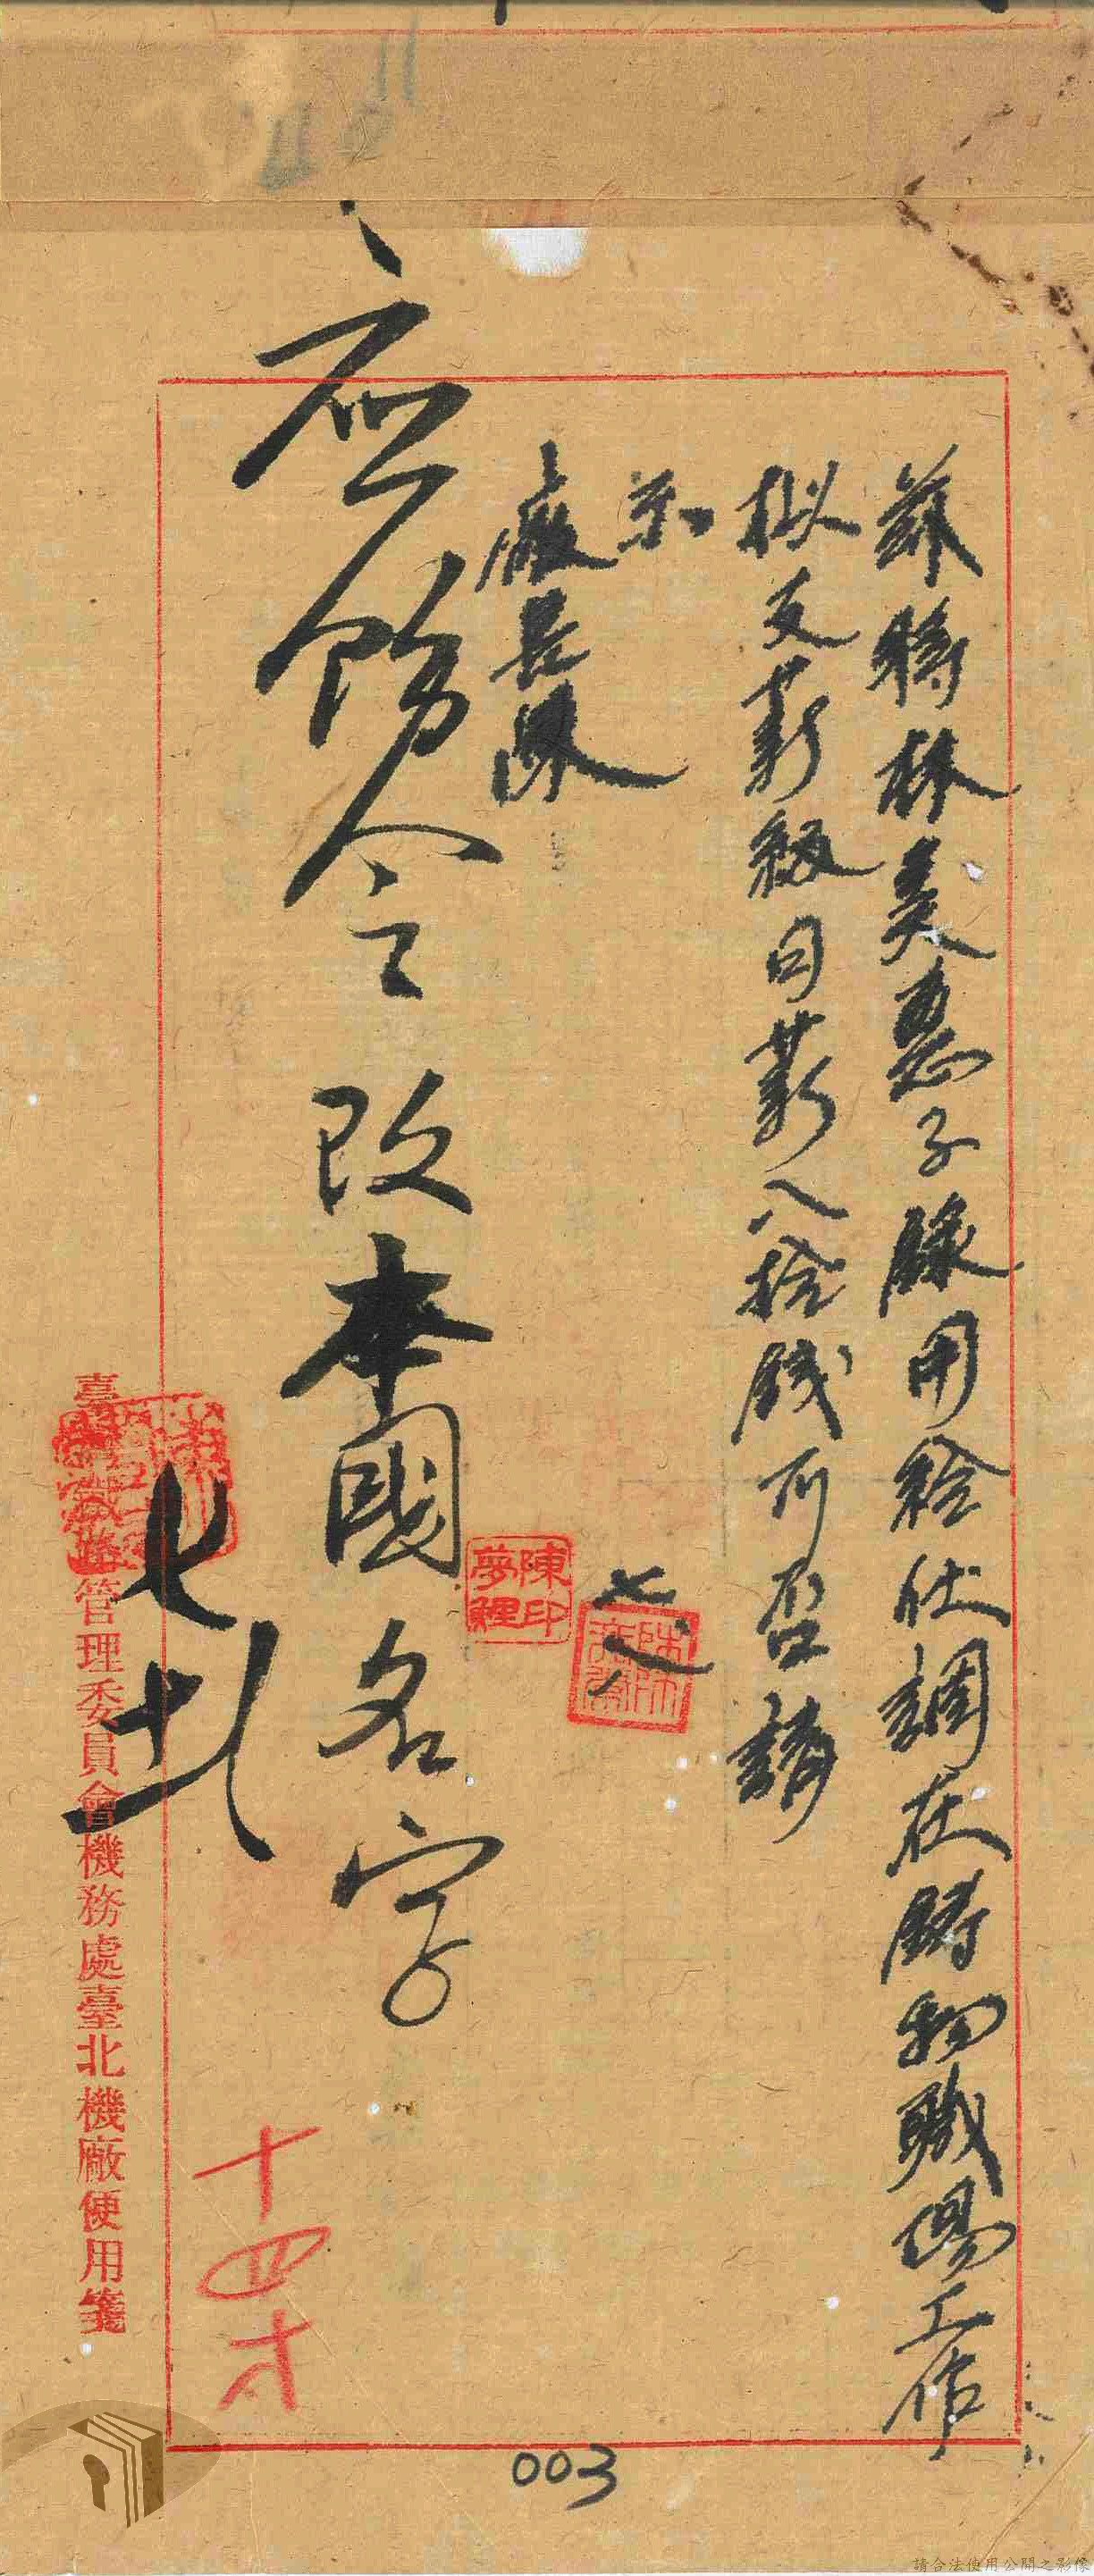 茲將林美惠子錄用給仕調在鑄物職場工作
拟支薪級日薪八拾錢可否請
示
廠長陳
七八
陳夢鯉印
应飭令改本國名字
七十一
十四才
臺灣鐵路管理委員會機務處臺北機廠使用箋
003
請合法使用公開之影像